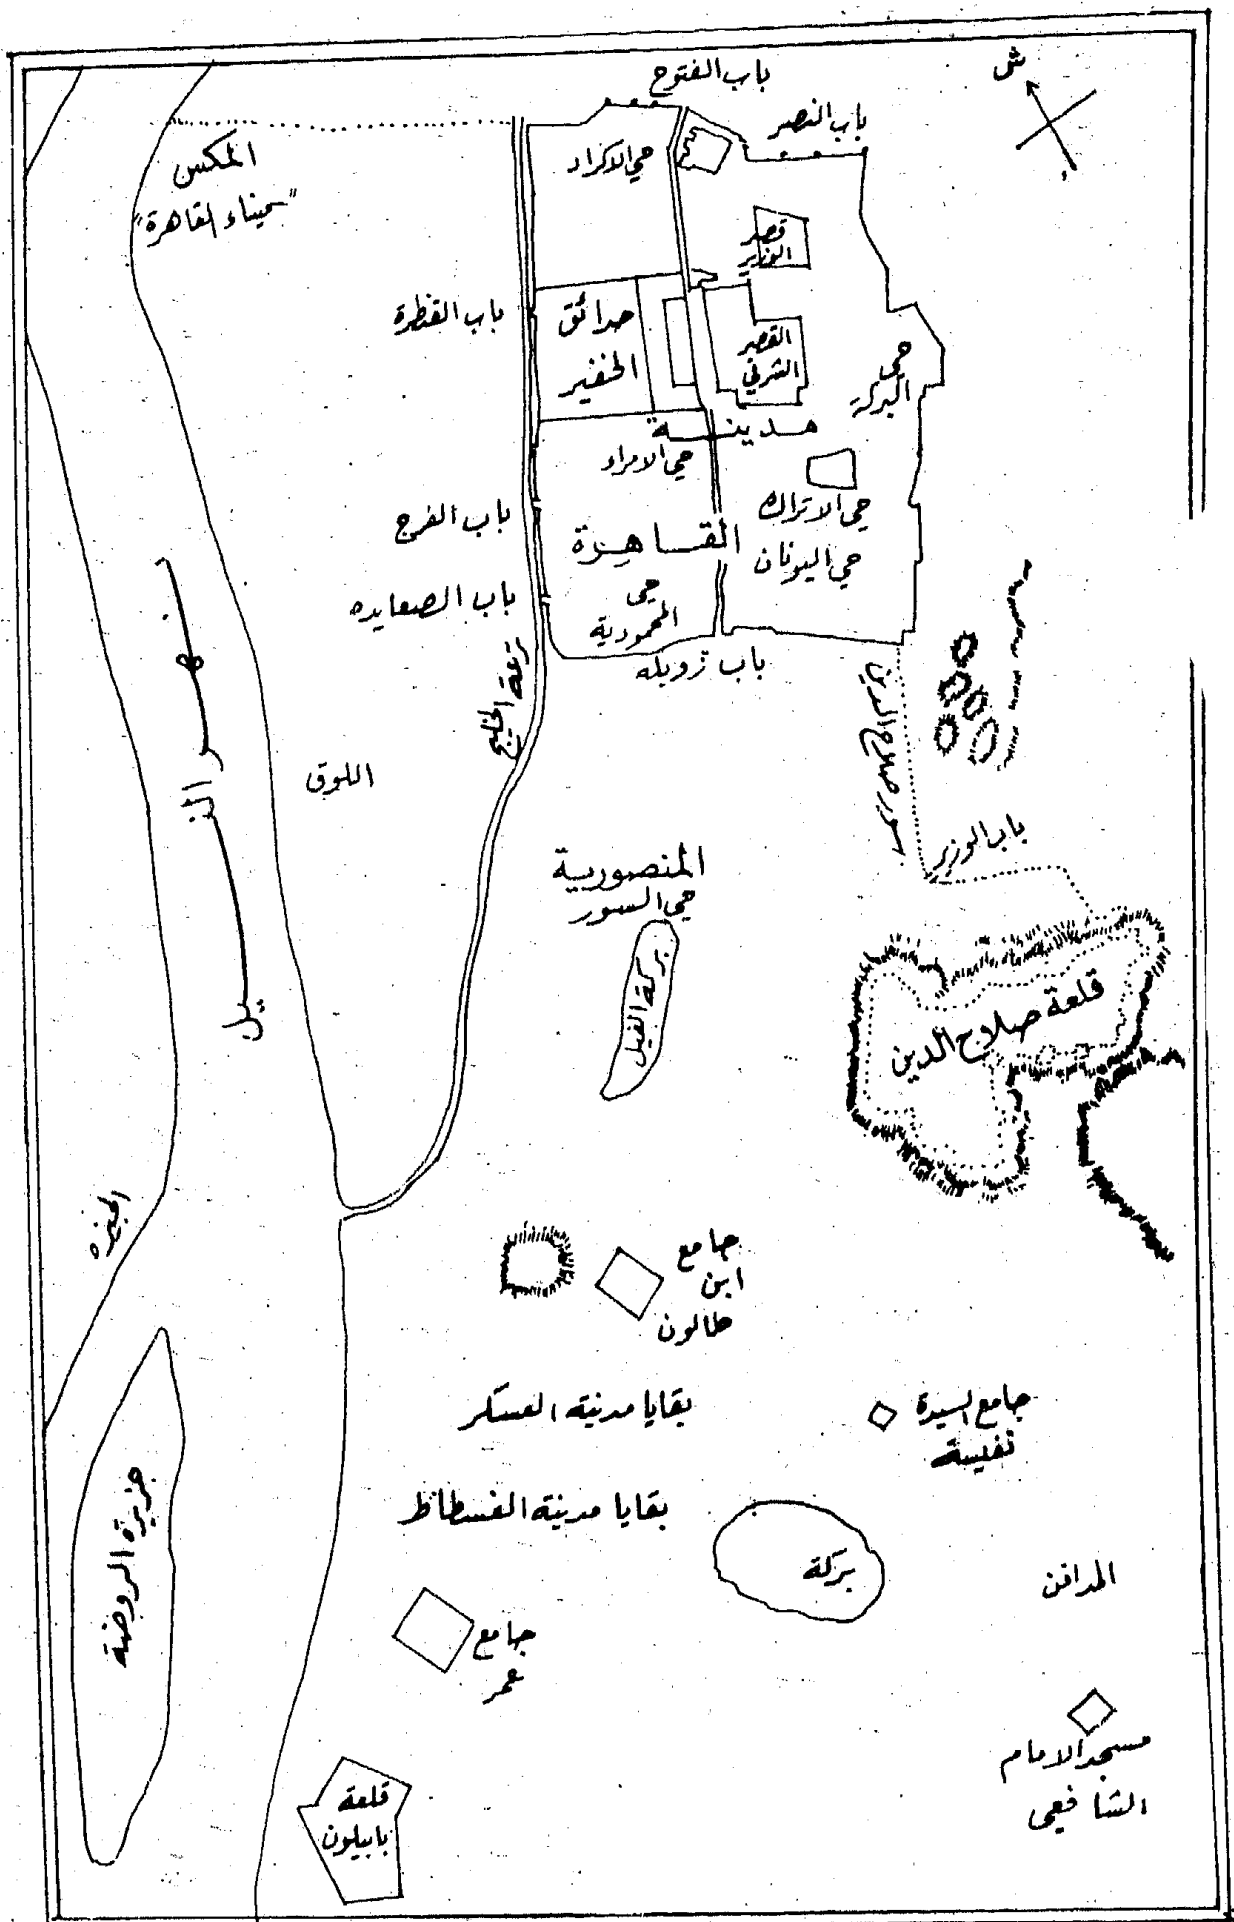 باب الفتوح
ش
باب النصر
حي الاكراد
المكس
"ميناء القاهرة"
قصر
الوزير
باب القنطرة
حدائق
القصر
الشرقي
حي
البركة
مدينة
حي الامراء
حي الاتراك
باب الفرج
القاهرة
حي اليونان
باب الصعايده
حي
المحمودية
باب زويله
ترعة الخليج
سور صلاح الدين
نهر النيل
اللوق
باب الوزير
المنصورية
حي السور
بركة الفيل
قلعة صلاح الدين
الجيزه
جامع
ابن
طالون
بقايا مدنية العسكر
جامع السيدة
نفيسة
بقايا مدينة الفسطاط
جزيرة الروضة
بركة
المدافن
جامع
عمر
مسجد الامام
الشافعي
قلعة
بابيلون